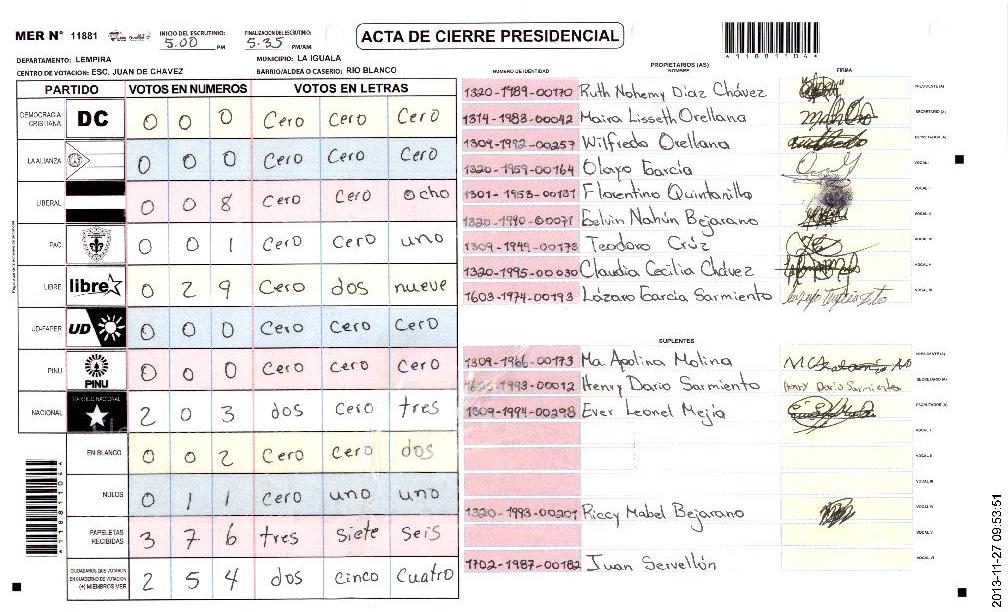 MER N° 11881
INICIO DEL ESCRUTINIO: 5.00 PM
FINALIZACION DEL ESCRUTINIO: 5.35 PM/AM
ACTA DE CIERRE PRESIDENCIAL
*11881104*
DEPARTAMENTO: LEMPIRA
MUNICIPIO: LA IGUALA
CENTRO DE VOTACION: ESC. JUAN DE CHAVEZ
BARRIO/ALDEA O CASERIO: RIO BLANCO
PARTIDO VOTOS EN NUMEROS VOTOS EN LETRAS
DEMOCRACIA CRISTIANA DC 0 0 0 Cero Cero Cero
LA ALIANZA 0 0 0 Cero Cero Cero
LIBERAL 0 0 8 Cero Cero ocho
PAC 0 0 1 Cero Cero uno
LIBRE libre 0 2 9 Cero dos nueve
UD-FAPER UD 0 0 0 Cero Cero Cero
PINU PINU 0 0 0 Cero Cero Cero
NACIONAL PARTIDO NACIONAL 2 0 3 dos Cero tres
EN BLANCO 0 0 2 Cero Cero dos
NULOS 0 1 1 Cero uno uno
PAPELETAS RECIBIDAS 3 7 6 tres siete seis
CIUDADANOS QUE VOTARON EN CUADERNO DE VOTACION (+) MIEMBROS MER 2 5 4 dos cinco Cuatro
*11881104*
PROPIETARIOS (AS)
NUMERO DE IDENTIDAD NOMBRE FIRMA
1320-1989-00170 Ruth Nohemy Diaz Chávez PRESIDENTE (A)
1314-1983-00042 Maira Lisseth Orellana SECRETARIO (A)
1309-1992-00257 Wilfredo Orellana ESCRUTADOR (A)
1320-1959-00164 Olayo García VOCAL I
1301-1953-00131 Florentino Quintanilla VOCAL II
1320-1990-00071 Belvin Nahún Bejarano VOCAL III
1309-1949-00173 Teodoro Crúz VOCAL IV
1320-1995-00030 Claudia Cecilia Chávez VOCAL V
1603-1974-00193 Lázaro Garcia Sarmiento VOCAL VI
SUPLENTES
1309-1966-00173 Ma Apolina Molina PRESIDENTE (A)
1993-00012 Henry Dario Sarmiento Henry Dario Sarmiento SECRETARIO (A)
1309-1994-00298 Ever Leonel Mejia ESCRUTADOR (A)
VOCAL I
VOCAL II
VOCAL III
1320-1993-00201 Riccy Mabel Bejarano VOCAL IV
VOCAL V
1702-1987-00182 Juan Servellón VOCAL VI
2013-11-27 09:53:51